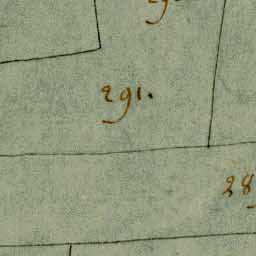 291.
28